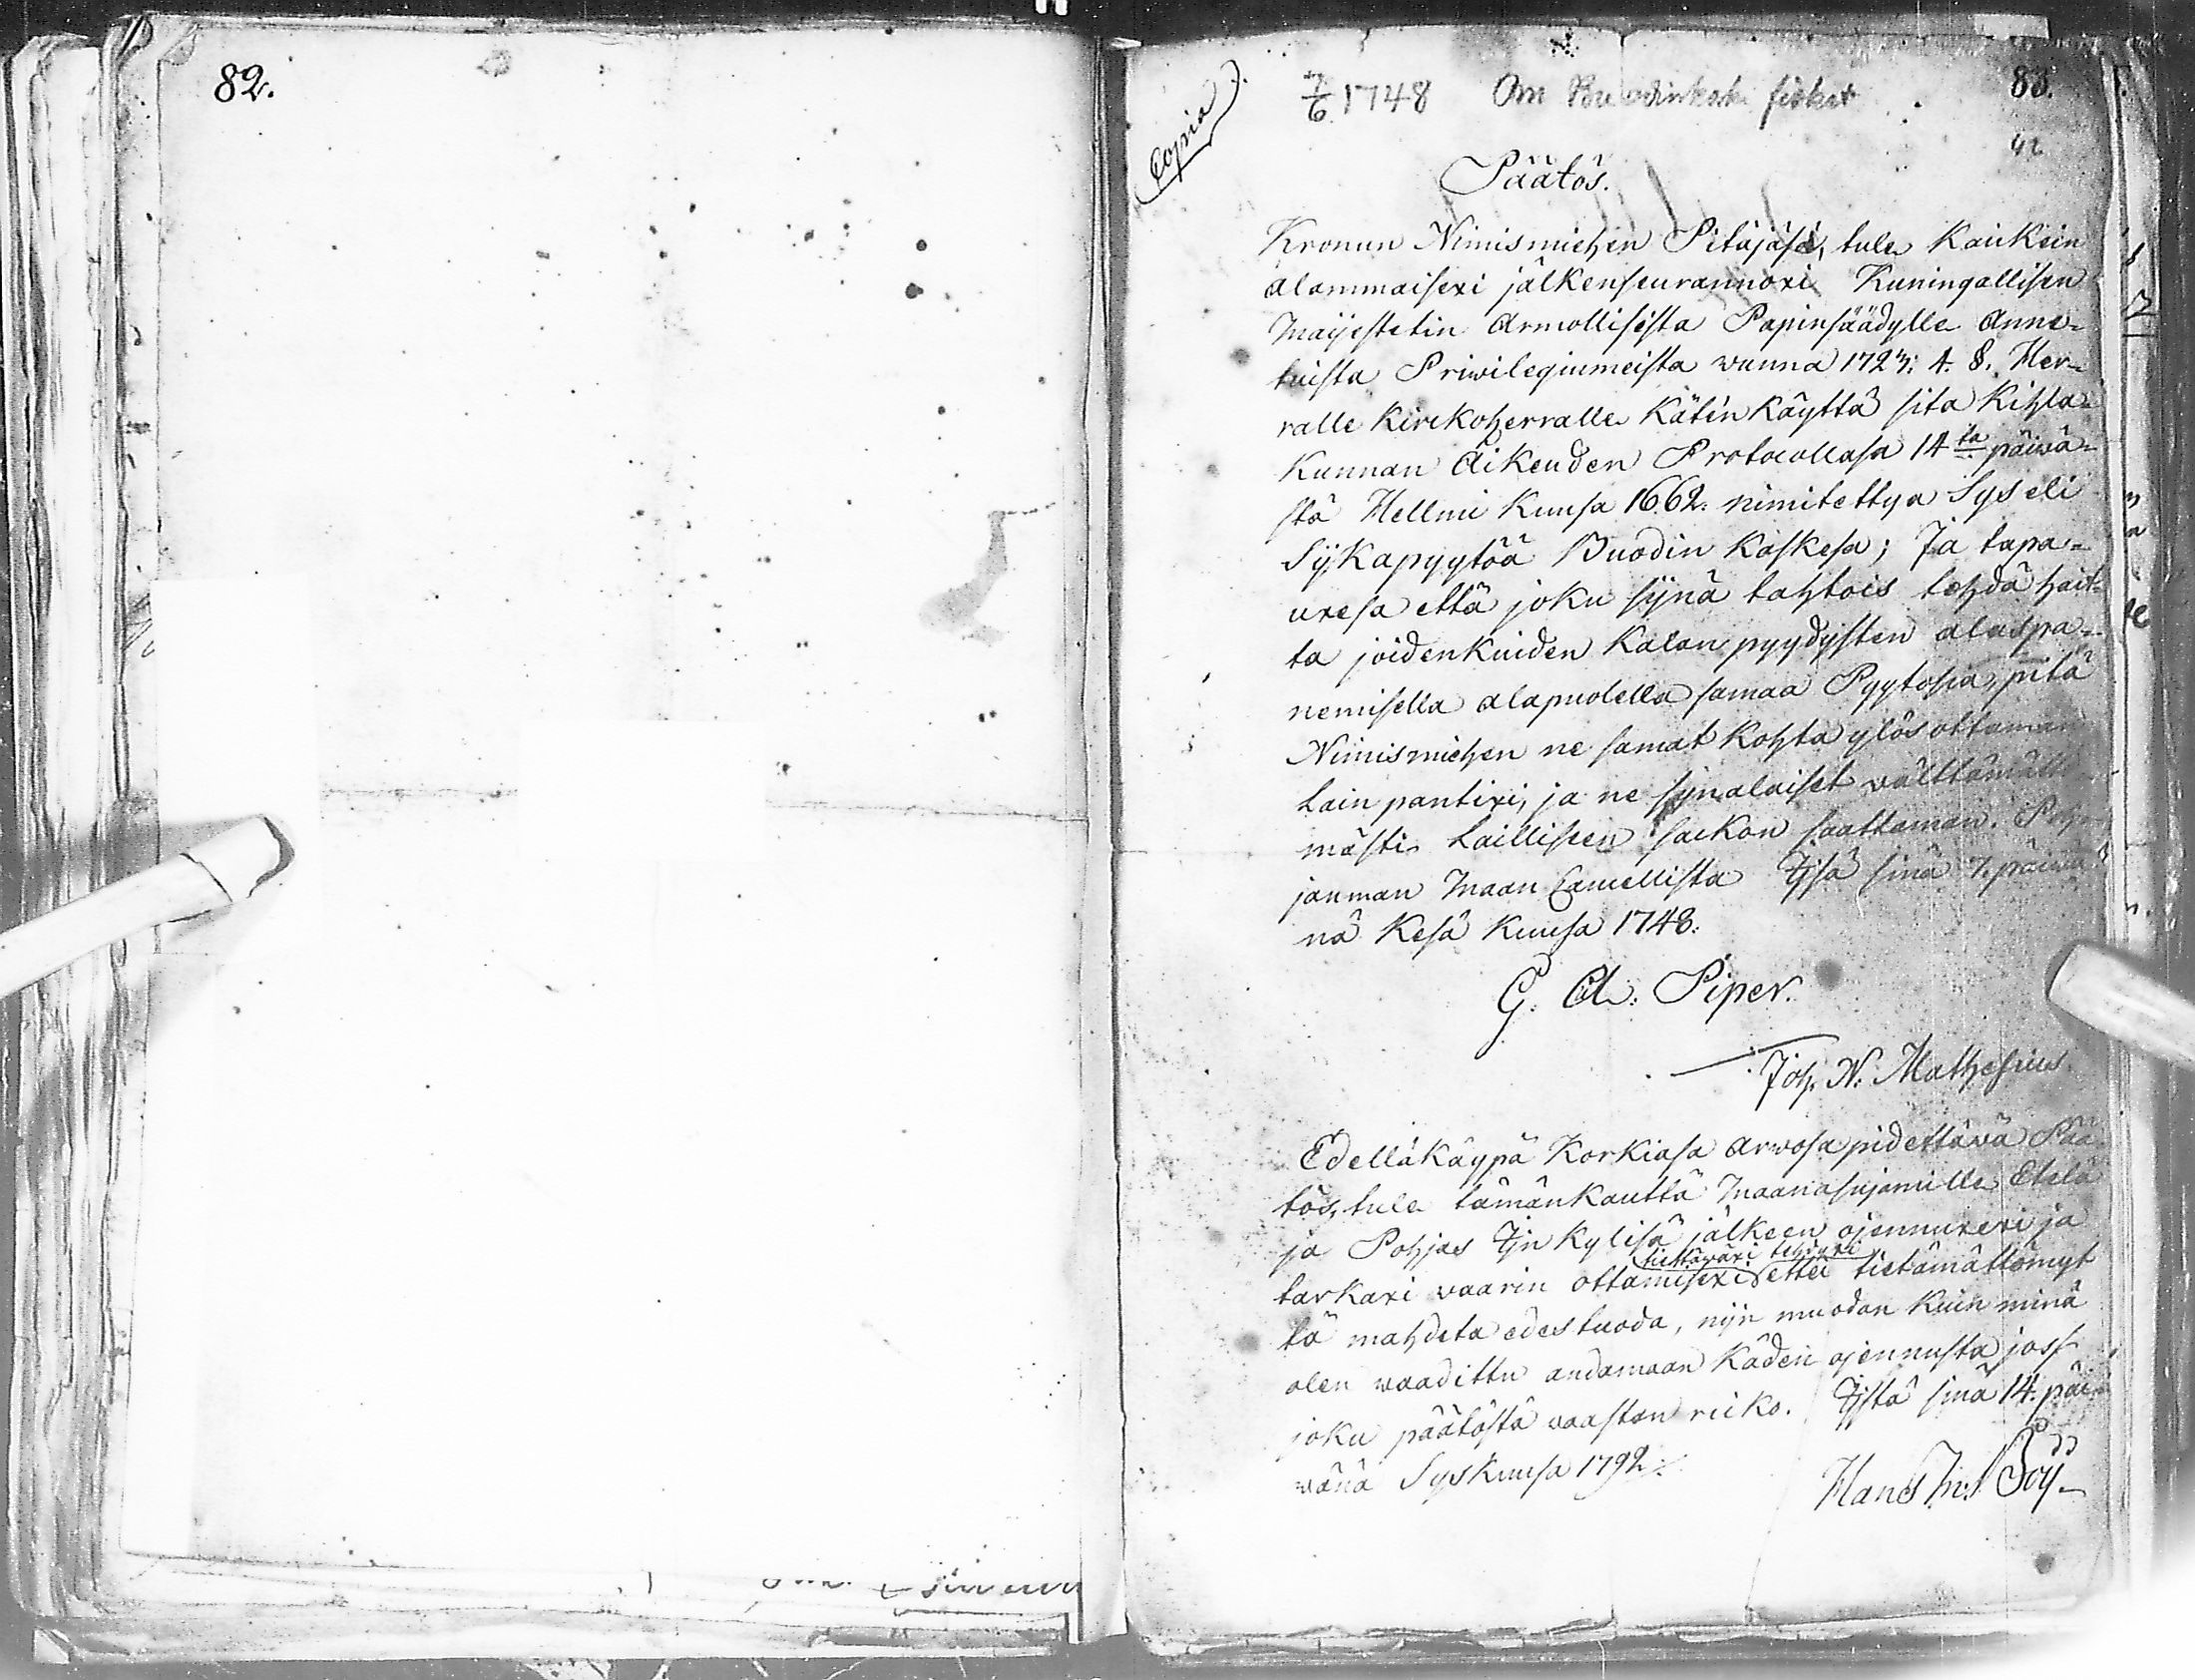 82.
Copia
7/6 1748 Om fisket
83.
42
Päätös.
Kronun Nimismiehen Pitäjäsä, tule kaikkein
alammaisexi jälkenseurannoxi Kuningallisen
Maijestetin Armollisista Papinsäädylle Anne-
tuista Priwilegiumeista wunna 1723: A. 8. Her-
ralle Kirkoherralle kätin käyttä sita Kihla-
Kunnan Äikeuden Protocollasa 14ta päiwä-
stä Hellmi Kuusa 1662. nimitettyä Sys eli
Sijkapyytöä Buodin Koskesa; Ja tapa-
uxesa että joku sijnä tahtois tehdä hait-
ta joidenkuiden Kalan pyydysten alaspa-
nemisella alapuolella samaa Pyytösia, pitä
Nimismiehen ne samat kohta ylösottaman
Lain pantixi, ja ne sijnalaiset wälttämättö-
mästi Laillisen sackon saattaman. Poh-
janman Maan Camellista Ijsä sinä 7. päiwä-
nä Kesä Kuusa 1748.
G. A: Piper.
Joh. N: Mathesius.
Edelläkäypä Korkiasa arwosa pidettäwä Pää-
tös, tule tämänkauttä Maanasujamille Etelä
ja Pohjas Ijn kylisä jälkeen ojennuxexi ja
tiettäwäxi tehdyxi
tarkaxi waarin ottamisexi ettei tietämättömyt
tä mahdeta edestuoda, nijn muodon kuin minä
olen waadittu andamaan käden ojennusta joss
joku päätöstä waastan ricko. Ijstä sinä 14. päi-
wänä Syskuusa 1792.
Hans